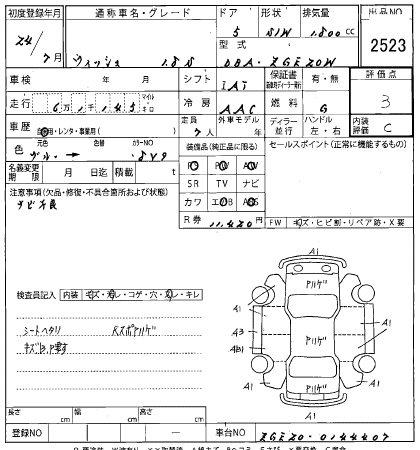 初度登録年月 通称車名・グレード ドア 形状 排気量 出品NO
24/7月 ウィッシュ 1.8S 5 S/W 1,800cc 2523
型式 DBA-ZGE20W
車検 年 月 シフト IAT 保証書 有・無 評価点 3
走行 6万1千145 マイル キロ 冷房 AAC 燃料 G
車歴 自家用・レンタ・事業用( ) 定員 7人 外車モデル 年 ディーラー 並行 ハンドル 左・右 内装評価 C
色 元色 色替 カラーNO
装備品(純正品に限る) セールスポイント(正常に機能するもの)
名義変更期限 月 日迄 積載 t
PS PW AW
SR TV ナビ
カワ エアB ABS
注意事項(欠品・修復・不具合箇所および状態)
ナビ不良
R券 11,420円
FW キズ・ヒビ割・リペア跡・X要
検査員記入 内装 キズ・汚レ・コゲ・穴・スレ・キレ
シートヘタリ
A1
アリゲ
A1
A1
A3
A1
A1
アリゲ
アリゲ
A1
A1
長さ cm 幅 cm 高さ cm
登録NO — 車台NO ZGE20-0144407